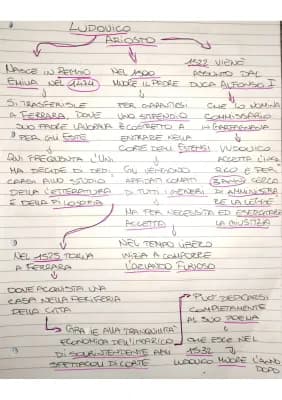 LUDOVICO
ARIOSTO
NASCE IN REGGIO
EMILIA NEL 1474
SI TRASFERISCE
A FERRARA, DOVE
SUO PADRE LAVORAVA
PER GLI ESTE
QUI FREQUENTA L'UNI
MA DECIDE DI DEDI
CARSI ALLO STUDIO
DELLA LETTERATURA
E DELLA FILOSOFIA
NEL 1500
MUORE IL PADRE
PER GARANTIRSI
UNO STIPENDIO
È COSTRETTO A
ENTRARE NELLA
CORTE DEGLI ESTENSI
GLI VENGONO
AFFIDATI COMPITI
DI TUTTI I GENERI
MA PER NECESSITÀ
ACCETTA
1522 VIENE
ASSUNTO DAL
DUCA ALFONSO I
CHE LO NOMINA
COMMISSARIO
IN GARFAGNANA
LUDOVICO
ACCETTA
E PER
3 ANNI CERCA
DI AMMINISTRA
RE LA LEGGE
ED ESERCITARE
LA GIUSTIZIA
NEL 1525 TORNA
A FERRARA
DOVE ACQUISTA UNA
CASA NELLA PERIFERIA
DELLA CITTÀ
NEL TEMPO LIBERO
INIZIA A COMPORRE
L'ORLANDO FURIOSO
GRAZIE ALLA TRANQUILLITÀ
ECONOMICA DELL'INCARICO
DI SOVRINTENDENTE AGLI
SPETTACOLI DI CORTE
PUÒ DEDICARSI
COMPLETAMENTE
AL SUO POEMA
CHE ESCE NEL
1532
LUDOVICO MUORE L'ANNO
DOPO